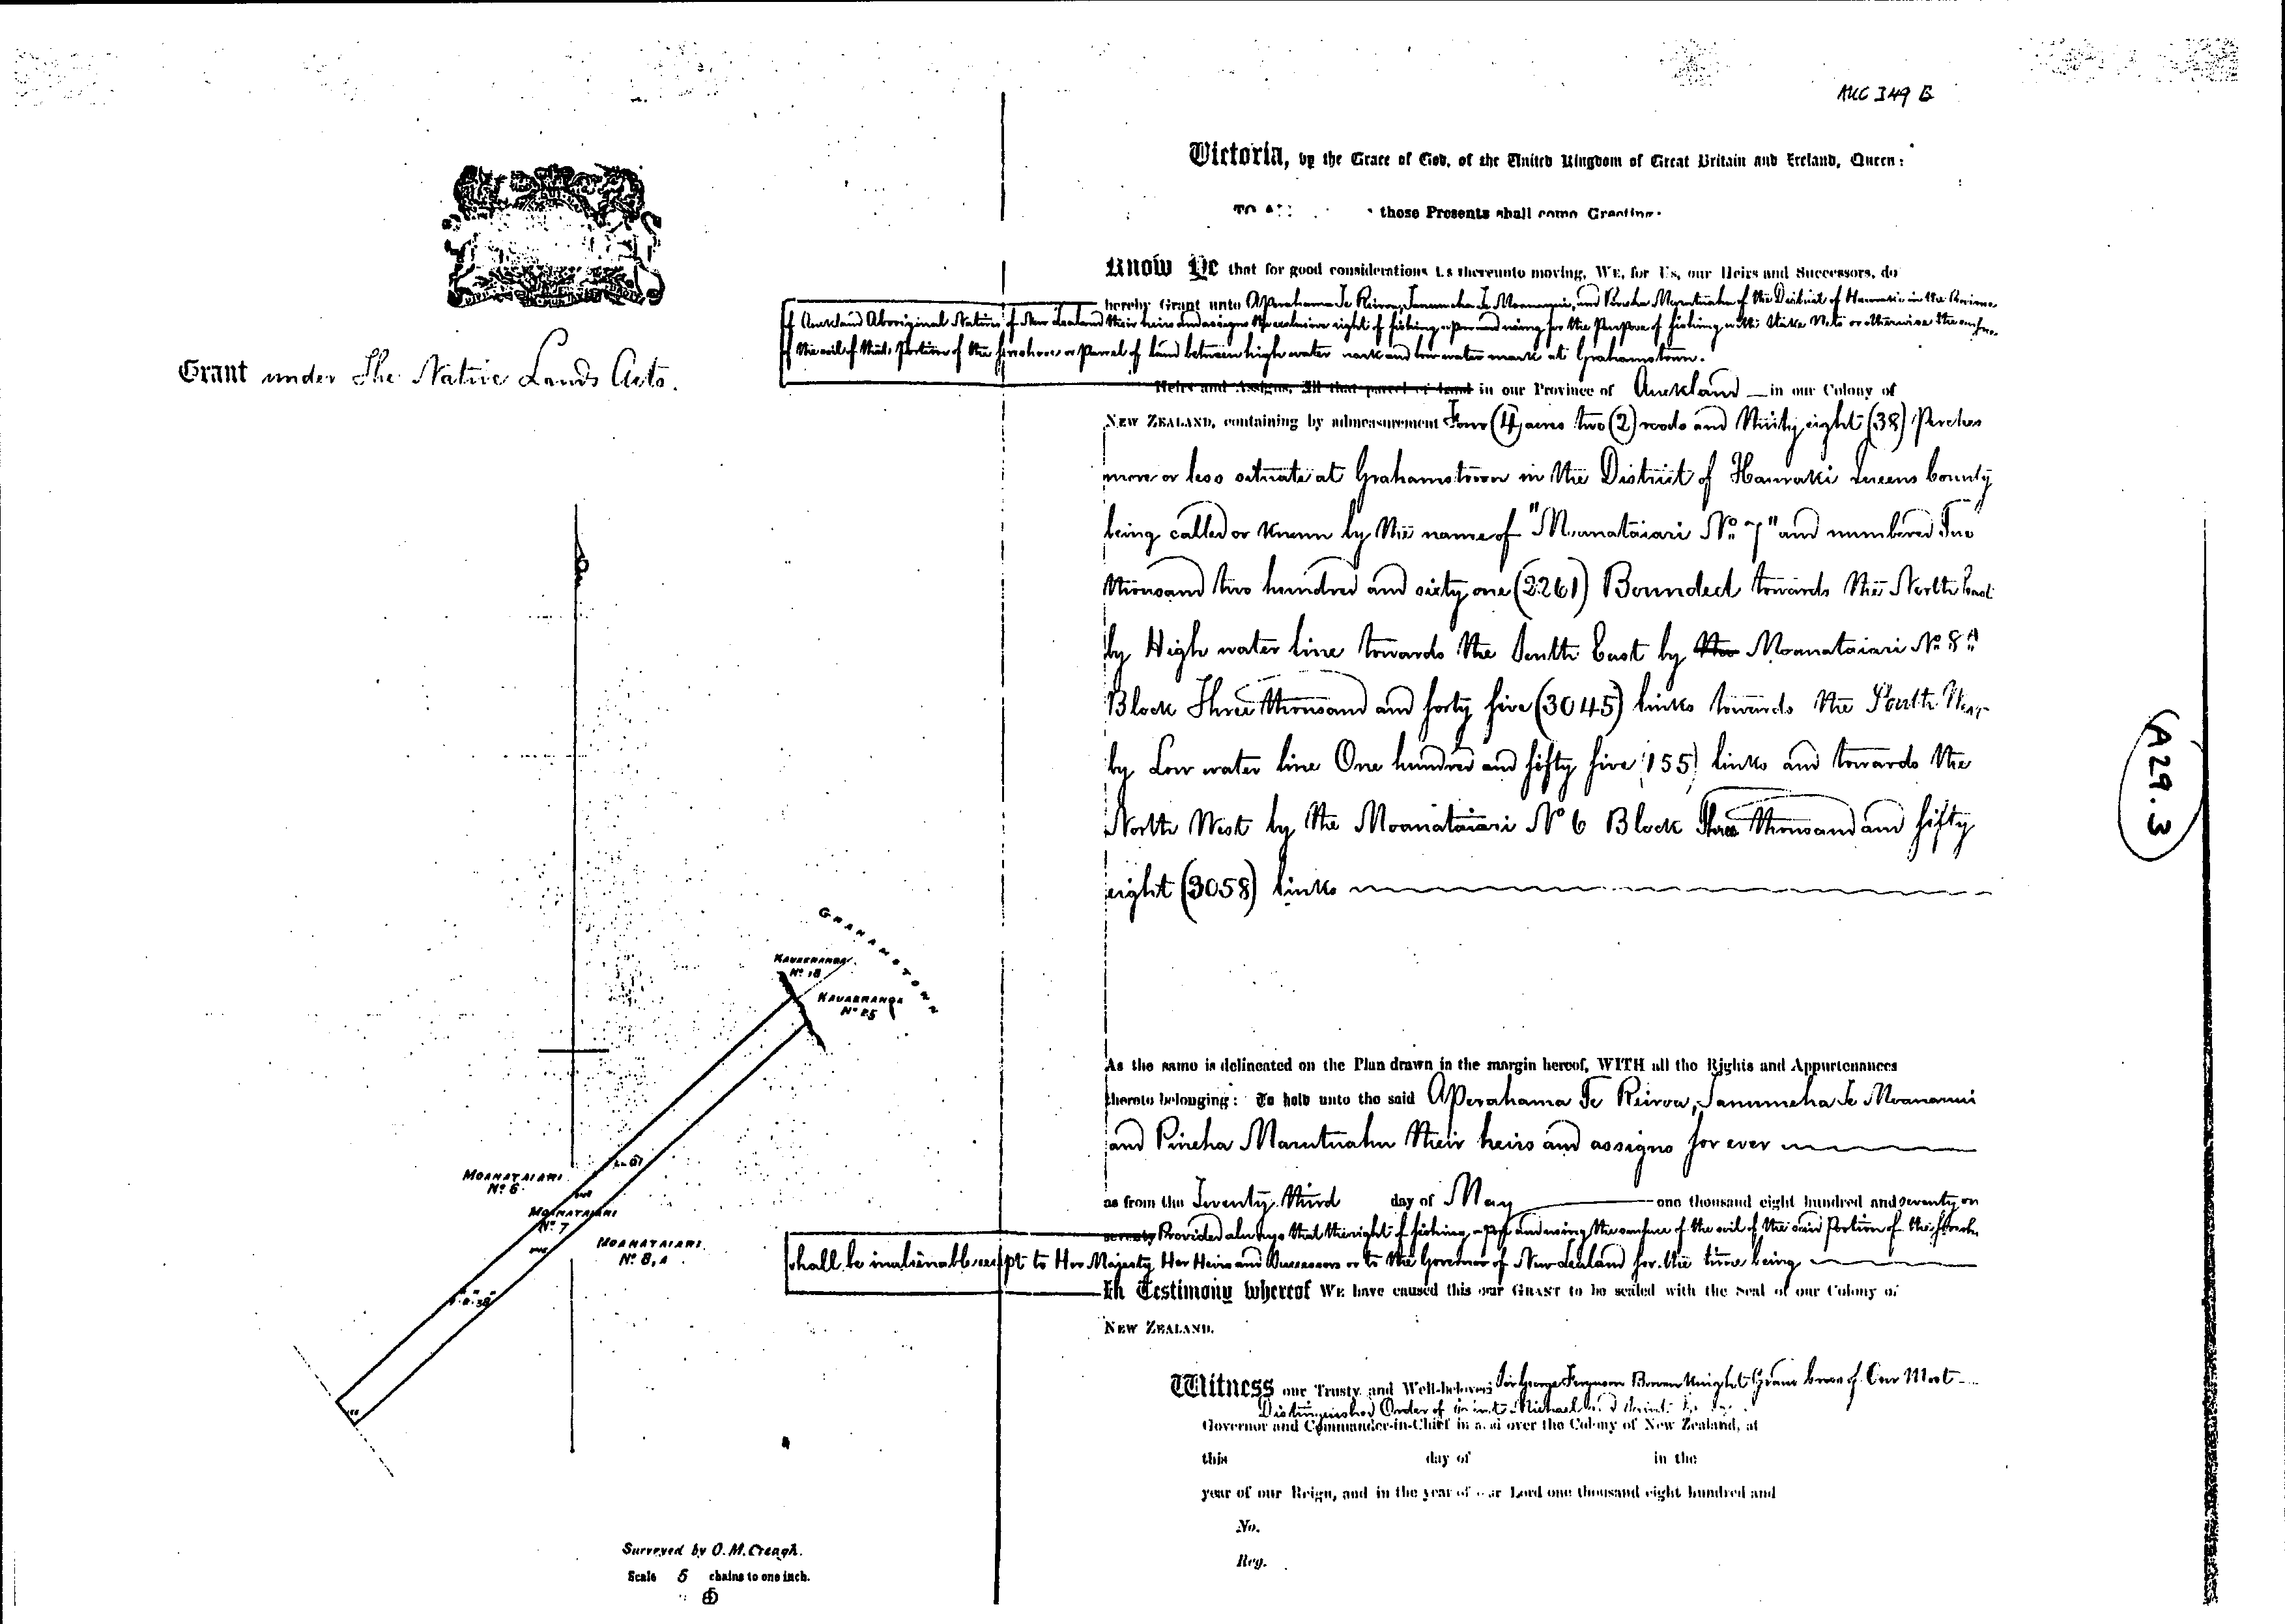 AUC 349 B
Victoria, by the Grace of God, of the United Kingdom of Great Britain and Ireland, Queen:
TO ALL those Presents shall come Greeting:
Know Ye that for good considerations Us thereunto moving, WE, for Us, our Heirs and Successors, do
hereby Grant unto Aperahama Te Reiroa, Te Moananui, and of the District of Hauraki in the Province
of Auckland Aboriginal Natives of New Zealand their heirs and assigns the exclusive right of fishing upon and using for the Purpose of fishing with Stake Nets or otherwise the surface
of the soil of that Portion of the foreshore or Parcel of land between high water mark and low water mark at Grahamstown.
Heirs and Assigns, All that parcel of land in our Province of Auckland in our Colony of
NEW ZEALAND, containing by admeasurement Four (4) acres two (2) roods and thirty eight (38) Perches
more or less situate at Grahamstown in the District of Hauraki Queens County
being called or known by the name of "Moanataiari No 7" and numbered Two
thousand two hundred and sixty one (2261) Bounded towards the North East
by High water line towards the South East by the Moanataiari No 8A
Block Three thousand and forty five (3045) links towards the South West
by Low water line One hundred and fifty five (155) links and towards the
North West by the Moanataiari No 6 Block Three thousand and fifty
eight (3058) links
As the same is delineated on the Plan drawn in the margin hereof, WITH all the Rights and Appurtenances
thereto belonging: To hold unto the said Aperahama Te Reiroa, Te Moananui
and Pineha Marutuahu their heirs and assigns for ever
as from the Twenty third day of May one thousand eight hundred and seventy on
seventy Provided always that the right of fishing upon and using the surface of the soil of the said Portion of the foreshore
shall be inalienable except to Her Majesty Her Heirs and Successors or to the Governor of New Zealand for the time being
In Testimony whereof WE have caused this our GRANT to be sealed with the Seal of our Colony of
NEW ZEALAND.
Witness our Trusty and Well-beloved Sir George Ferguson Bowen Knight Grand Cross of Our Most
Distinguished Order of Saint Michael and Saint
Governor and Commander-in-Chief in and over the Colony of New Zealand, at
this day of in the
year of our Reign, and in the year of our Lord one thousand eight hundred and
No.
Reg.
A29.3
Grant under The Native Lands Acts.
GRAHAMSTOWN
KAUAERANGA
No 18
KAUAERANGA
No 25
MOANATAIARI
No 6
MOANATAIARI
No 7
MOANATAIARI
No 8,A
4-2-38
155
Surveyed by O.M.Creagh.
Scale 5 chains to one inch.